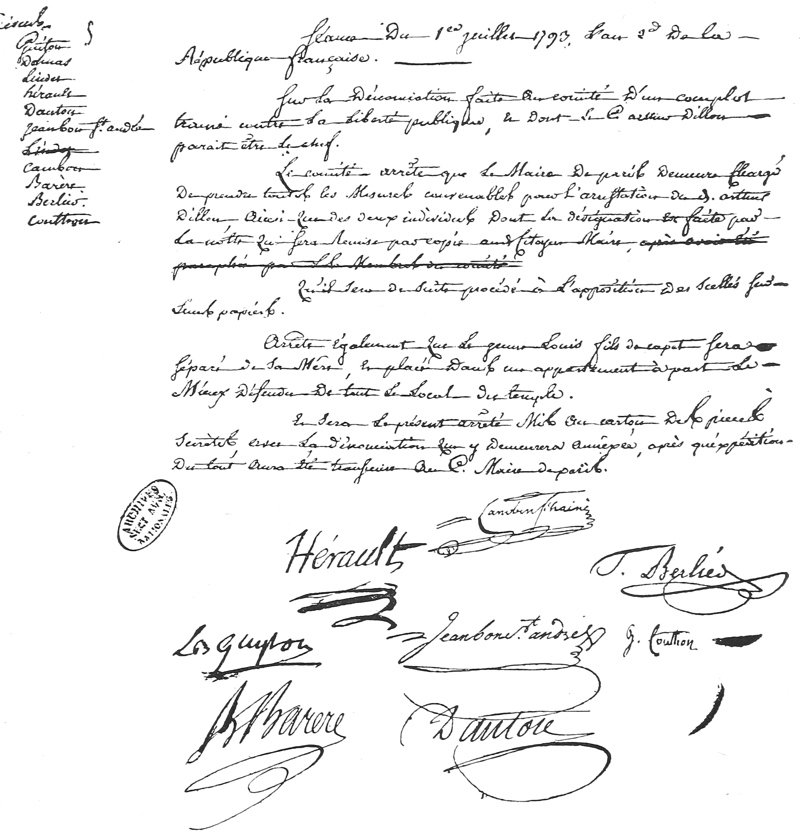 Guiton
Delmas
Lindet
hérault
Danton
jeanbon St. andré
Lindet
cambon
Barère
Berlier
couthon
séance Du 1er juillet 1793, L'an 2d De la
République française.
sur La Dénonciation faite au comité D'un complot
tramé contre La Liberté publique, & dont Le C. arthur Dillon
parait être Le chef.
Le comité arrête que Le Maire De paris Demeure chargé
De prendre toutes les Mesures convenables pour l'arrestation du d. arthur
Dillon ainsi que des deux individus Dont La désignation est faite par
La note qui sera Remise par copie au Citoyen Maire, après avoir été
paraphée par Les Membres du comité
Qu'il sera de suite procédé à L'apposition des scellés sur
Leurs papiers.
Arrête également que Le jeune Louis fils de capet sera
séparé de sa Mère, & placé Dans un appartement à part Le
Mieux défendu De tout Le Local du temple.
& sera Le présent arrêté Mis au carton Des pièces
secrètes avec La dénonciation qui y Demeurera annexée, après qu'expédition
Du tout aura été transmise au C. Maire de paris.
ARCHIVES
NATIONALES
Cambon fils ainé
Hérault
T. Berlier
L B Guyton
Jeanbon St. andré
G. Couthon
B. Barere
Danton